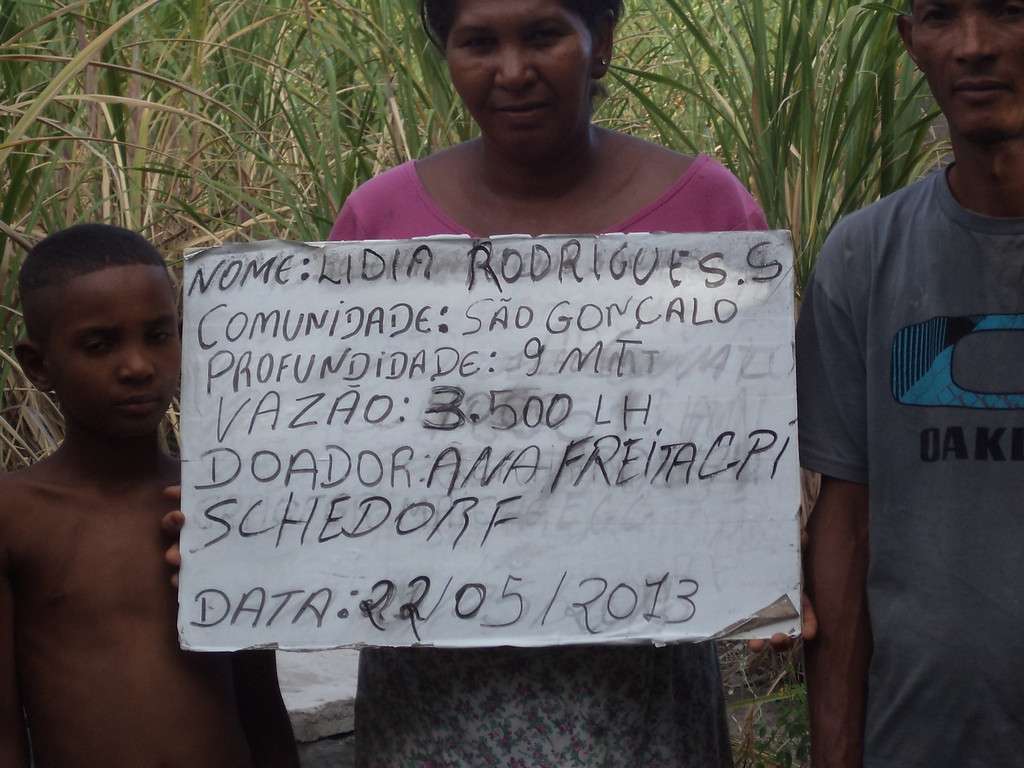 NOME: LIDIA RODRIGUES.S
COMUNIDADE: SÃO GONÇALO
PROFUNDIDADE: 9 MT
VAZÃO: 3.500 LH
DOADOR: ANA FREITAG-PI
SCHEDORF
DATA: 22/05/2013